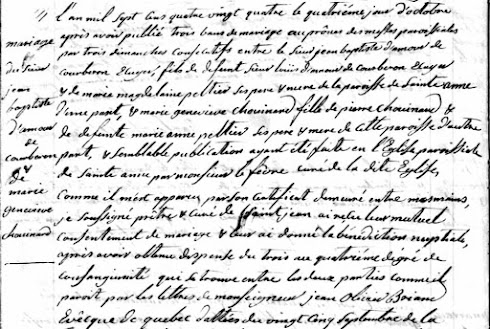 mariage
du Sieur
jean
baptiste
D'amour
de
courberon
&
de
marie
genevieve
chouinard
L'an mil Sept Cens quatre vingt quatre le quatrième jour d'octobre
après avoir publié trois bans de mariage au prônes des messes paroissiales
par trois dimanches Consécutifs entre le Sieur jean baptiste d'amour de
courberon Ecuyer, fils de defunt Sieur louis D'amour de Courberon Ecuyer
& de marie magdelaine peltier ses pere & mere de la paroisse de Sainte anne
D'une part, & marie genevieve Chouinard fille de pierre Chouinard &
de defunte marie anne peltier ses pere & mere de cette paroisse d'autre
part, & Semblable publication ayant été faite en l'Eglise paroissiale
de Sainte anne par monsieur le fèvre curé de la dite Eglise,
Comme il m'est apparu par son Certificat demeuré entre mes mains,
je soussigné prêtre & Curé de Saint jean ai reçu leur mutuel
Consentement de mariage & leur ai donné la bénédiction nuptiale,
après avoir obtenu dispense du trois au quatrième degré de
Consanguinité qui se trouve entre les deux parties comme il
paroit par les lettres de monseigneur jean Olivier Briand
Evêque de quebec dattées du vingt Cinq Septembre de la